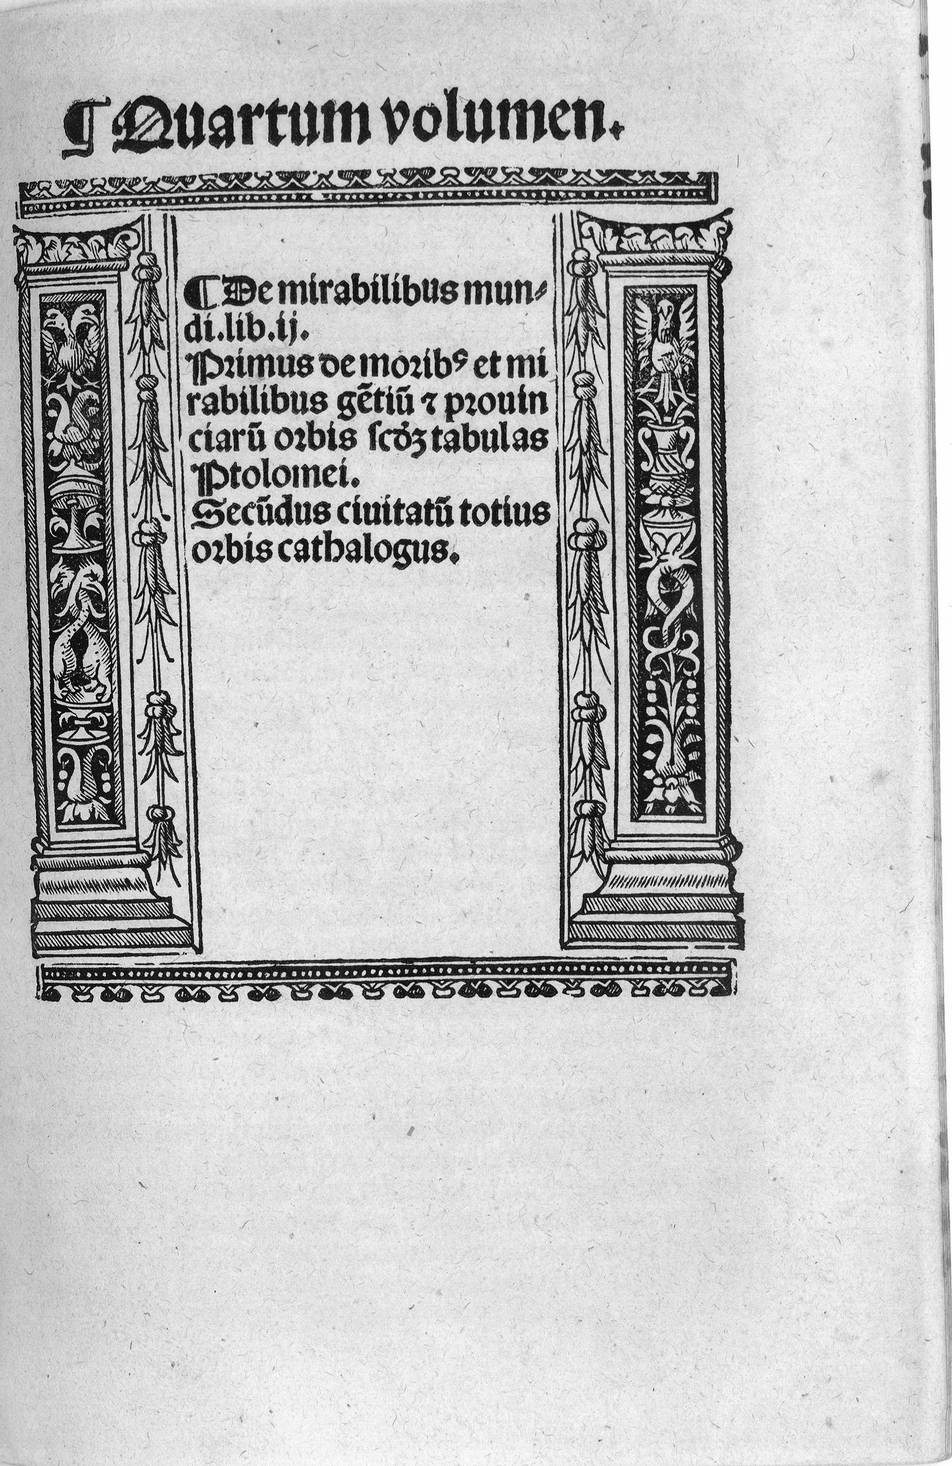 ¶ Quartum volumen.
¶ De mirabilibus mun⸗
di.lib.ij.
Primus de moribꝰ et mi
rabilibus gẽtiũ ⁊ prouin
ciarũ orbis scďꝫ tabulas
Ptolomei.
Secũdus ciuitatũ totius
orbis cathalogus.